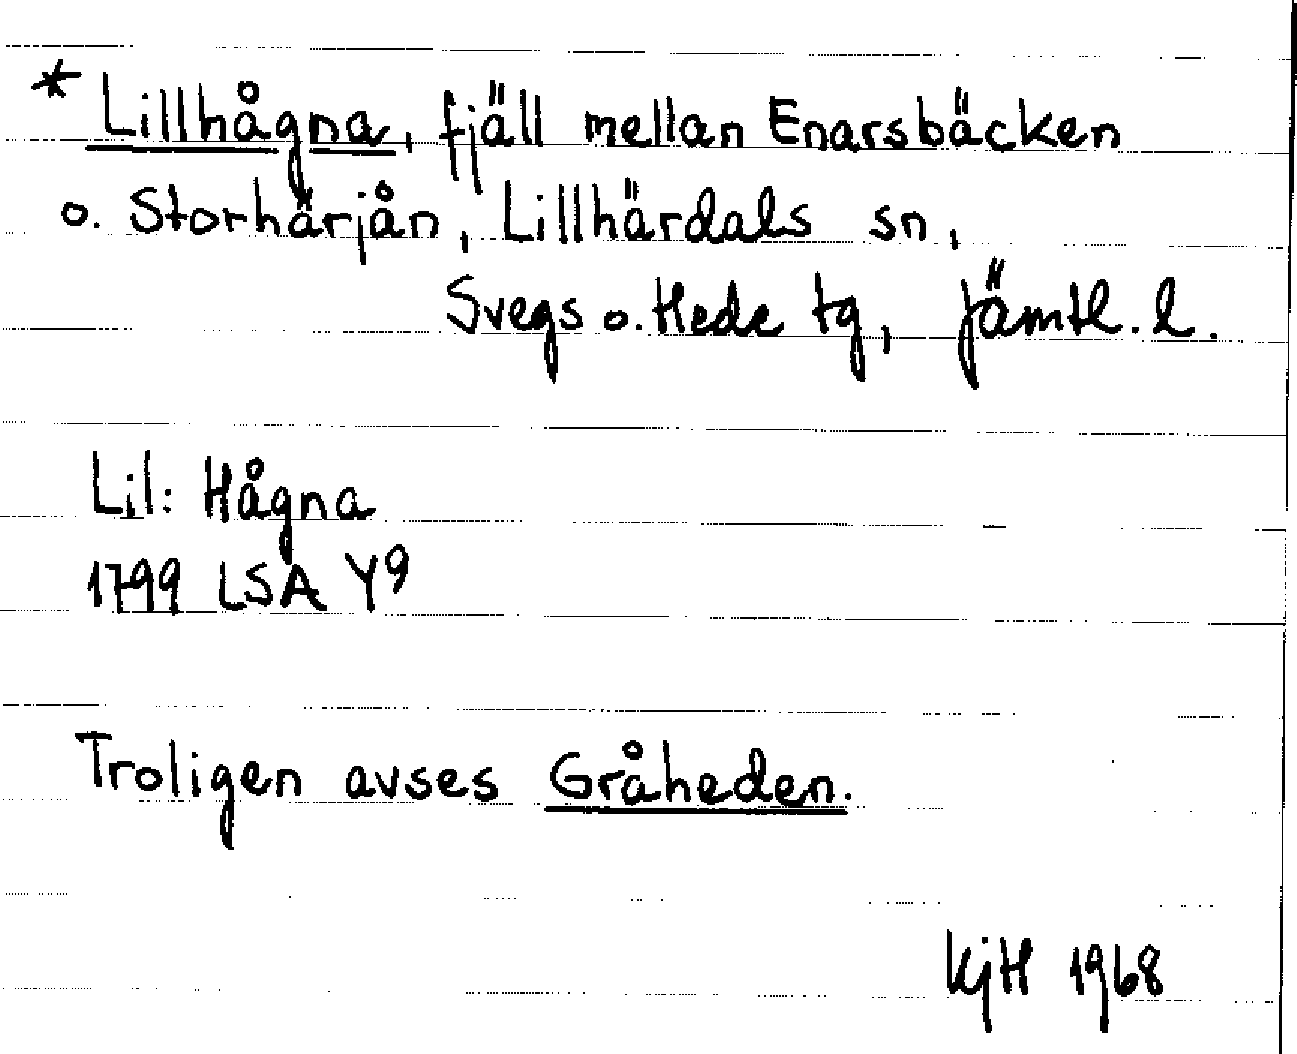 * Lillhågna, fjäll mellan Enarsbäcken
o. Storhärjån, Lillhärdals sn,
Svegs o. Hede tg, Jämtl. l.
Lil: Hågna
1799 LSA Y9
Troligen avses Gråheden.
KjH 1968